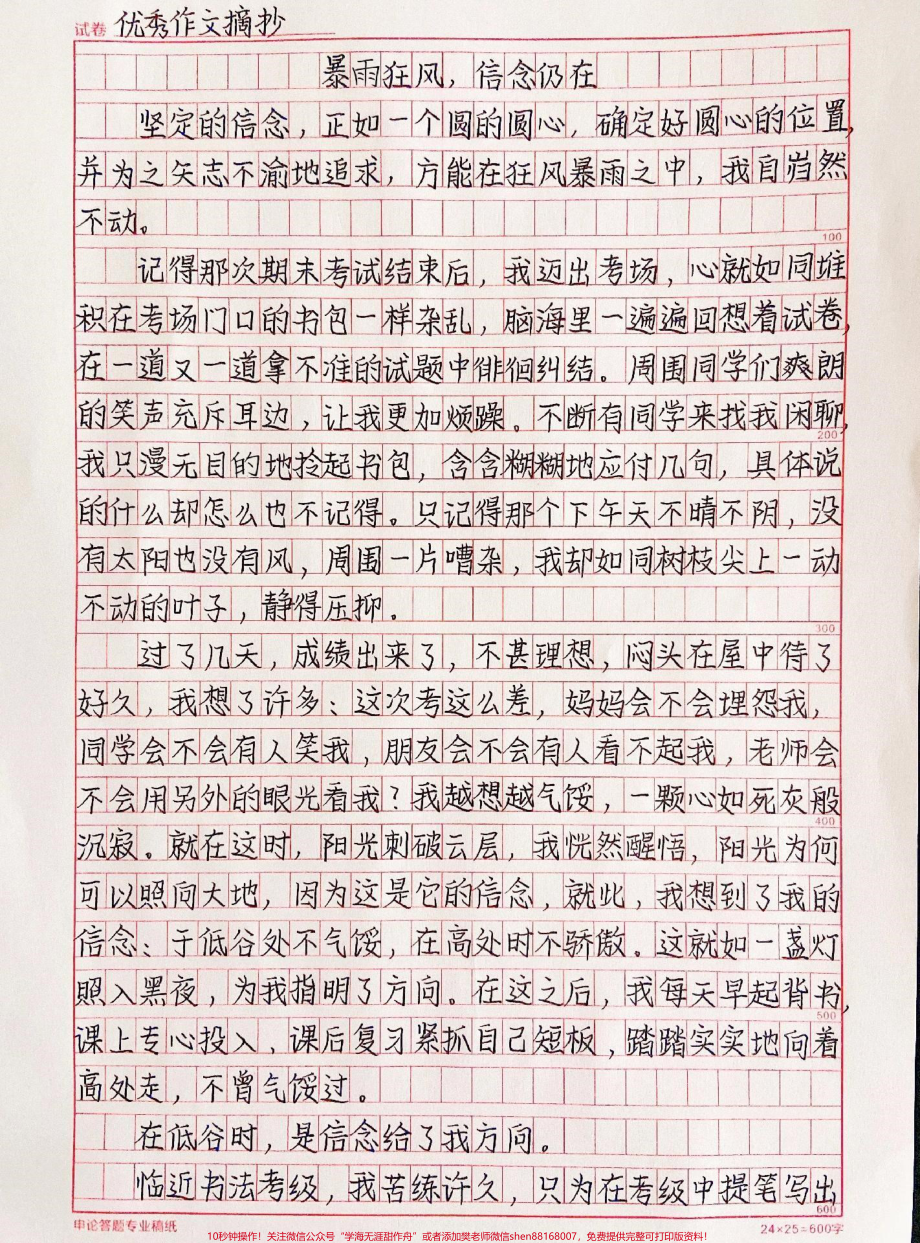 试卷 优秀作文摘抄
暴雨狂风，信念仍在
坚定的信念，正如一个圆的圆心，确定好圆心的位置，
并为之矢志不渝地追求，方能在狂风暴雨之中，我自岿然
不动。
100
记得那次期末考试结束后，我迈出考场，心就如同堆
积在考场门口的书包一样杂乱，脑海里一遍遍回想着试卷，
在一道又一道拿不准的试题中徘徊纠结。周围同学们爽朗
的笑声充斥耳边，让我更加烦躁。不断有同学来找我闲聊，
200
我只漫无目的地拎起书包，含含糊糊地应付几句，具体说
的什么却怎么也不记得。只记得那个下午天不晴不阴，没
有太阳也没有风，周围一片嘈杂，我却如同树枝尖上一动
不动的叶子，静得压抑。
300
过了几天，成绩出来了，不甚理想，闷头在屋中待了
好久，我想了许多：这次考这么差，妈妈会不会埋怨我，
同学会不会有人笑我，朋友会不会有人看不起我，老师会
不会用另外的眼光看我？我越想越气馁，一颗心如死灰般
400
沉寂。就在这时，阳光刺破云层，我恍然醒悟，阳光为何
可以照向大地，因为这是它的信念，就此，我想到了我的
信念：于低谷处不气馁，在高处时不骄傲。这就如一盏灯
照入黑夜，为我指明了方向。在这之后，我每天早起背书，
500
课上专心投入、课后复习紧抓自己短板，踏踏实实地向着
高处走，不曾气馁过。
在低谷时，是信念给了我方向。
临近书法考级，我苦练许久，只为在考级中提笔写出
600
申论答题专业稿纸 24×25=600字
10秒钟操作！关注微信公众号“学海无涯甜作舟”或者添加樊老师微信shen88168007，免费提供完整可打印版资料！